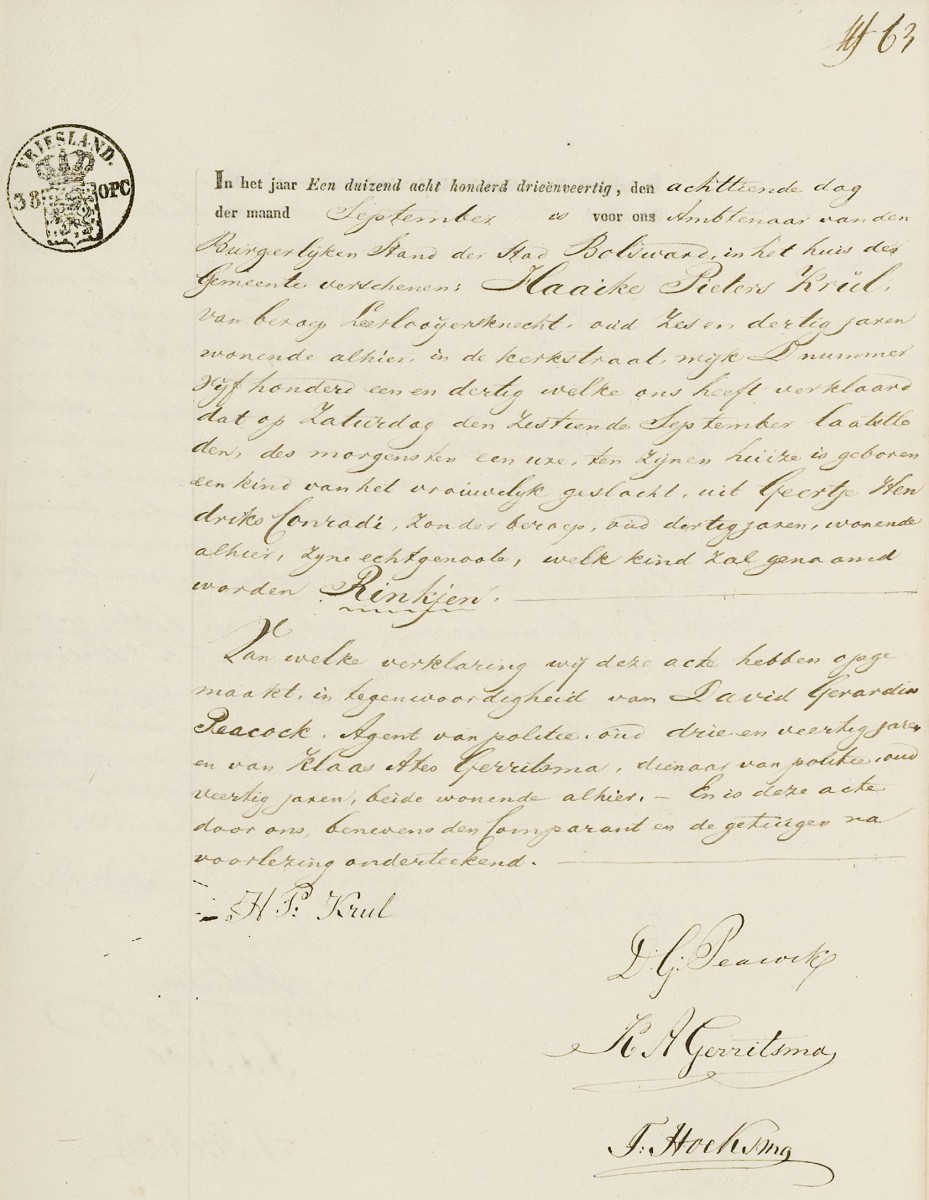 63
VRIESLAND.
38 OPC
In het jaar Een duizend acht honderd drieënveertig, den achttiende dag
der maand September is voor ons Ambtenaar van den
Burgerlijken Stand der Stad Bolsward, in het huis der
Gemeente verschenen: Haaike Pieters Krul,
van beroep Leerlooijersknecht, oud Zes en dertig jaren
wonende alhier, in de Kerkstraat wijk D nummer
vijf honderd een en dertig welke ons heeft verklaard
dat op Zaturdag den Zestiende September laatstle
den, des morgens ten een ure, ten zijnen huize is geboren
een kind van het vrouwelijk geslacht, uit Geertje Hen
driks Conradi, zonder beroep, oud dertig jaren, wonende
alhier, zyne echtgenoote, welk kind zal genaamd
worden Rinkjen.
Van welke verklaring wij deze acte hebben opge
maakt, in tegenwoordigheid van David Gerardus
Peacock, Agent van politie, oud drie en veertig jaren
en van Klaas Ates Gerritsma, dienaar van politie, oud
veertig jaren, beide wonende alhier. – En is deze acte
door ons, benevens den Comparant en de getuigen na
voorlezing onderteekend.
H P: Krul
D: G: Peacock
K A Gerritsma
T: Hoeksma